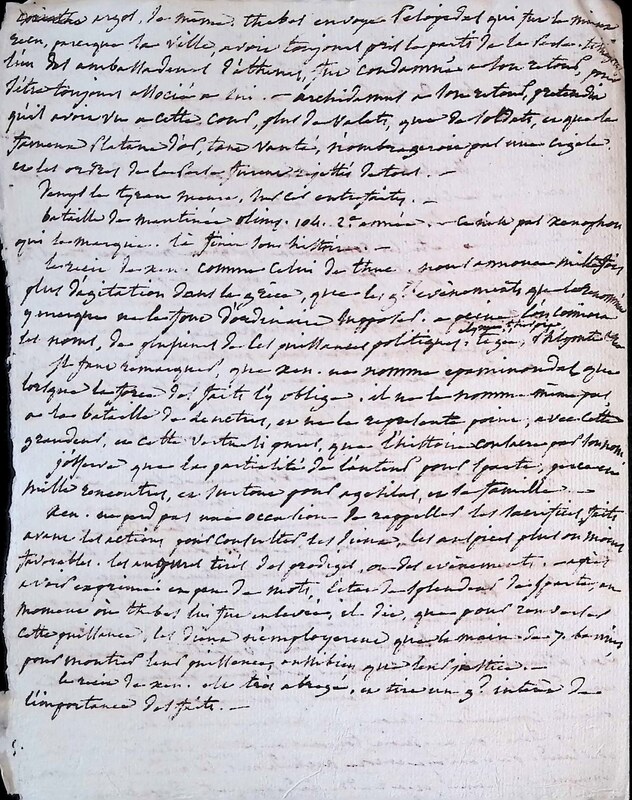 argos, de même. thebes envoya Pelopidas qui fut le mieux
reçu, parceque la ville avoit toujours pris le parti de la Perse. Timagoras
l'un des ambassadeurs d'athenes, fut condamné a son retour, pour
s'être toujours associé a lui. — archidamus a son retour, pretendit
qu'il avoit vu a cette cour, plus de valets, que de soldats, et que le
fameux Platane d'or, tant vanté, n'ombrageroit pas une cigale
et les ordres de la Perse furent rejettés de tous. —
Denys le tyran meurt, sur ces entrefaites. —
bataille de mantinée olimp. 104. 2e année. — Ce n'est pas xenophon
qui la marque. là finit son histoire. —
le recit de xen. comme celui de thuc. nous annonce mille fois
plus d'agitation dans la grèce, que les gds evenements que la renommée
y marque ne le font d'ordinaire supposer. a peine l'on connoit
les noms, de plusieurs de ces puissances politiques. tegée,
Il faut remarquer, que xen. ne nomme epaminondas que
lorsque la force des faits l'y oblige. il ne le nomme même pas
a la bataille de leuctres, et ne le represente point, avec cette
grandeur, et cette vertu si pure, que l'histoire consacre par son nom
j'observe que la partialité de l'auteur pour sparte, perce en
mille rencontres, et surtout pour agesilas, et sa famille. —
Xen. ne perd pas une occasion de rappeller les sacrifices faits
avant les actions pour consulter les dieux, les auspices plus ou moins
favorables. les augures tirés des prodiges, ou des evènements. — après
avoir exprimé en peu de mots, l'etat de splendeur de sparte, au
moment ou thebes lui fut enlevée, il dit, que pour renverser
cette puissance, les dieux n'employerent que la main de 7. bannis
pour montrer leur puissance, aussibien que leur justice. —
le recit de xen. est très abregé, et tire un gd interêt de
l'importance des faits. —